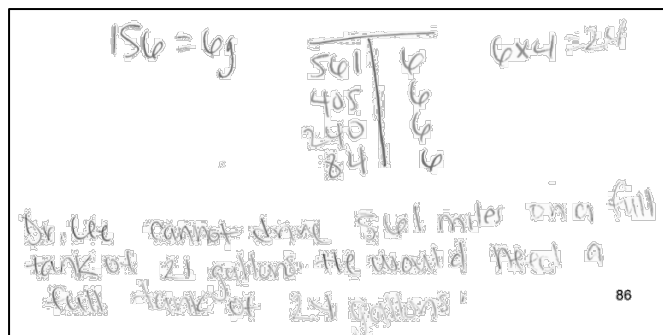 156 = 6g
561 | 6
405 | 6
240 | 6
84 | 6
6x4 = 24
Dr. Lee cannot drive 561 miles on a full
tank of 21 gallons He would need a
full tank of gallons
86